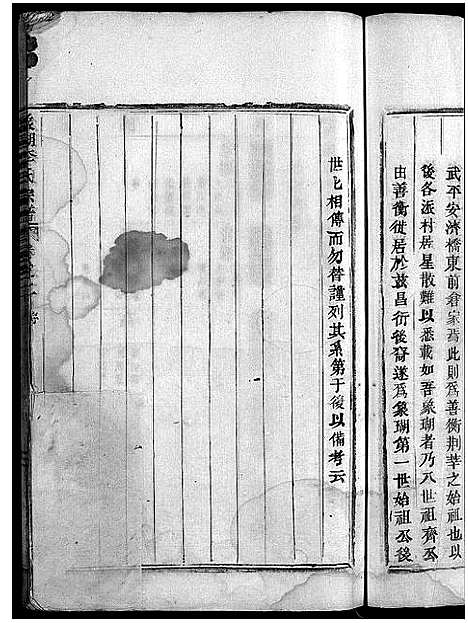 武平安濟橋東前倉家焉此則爲善衡荆莘之始祖也以
後各派村居星散難以悉載如吾象瑚者乃八世祖齊丕
由善衡徙居於茲昌衍後裔遂爲象瑚第一世始祖丕後
世乚相傳而勿替謹列其系第于後以備考云